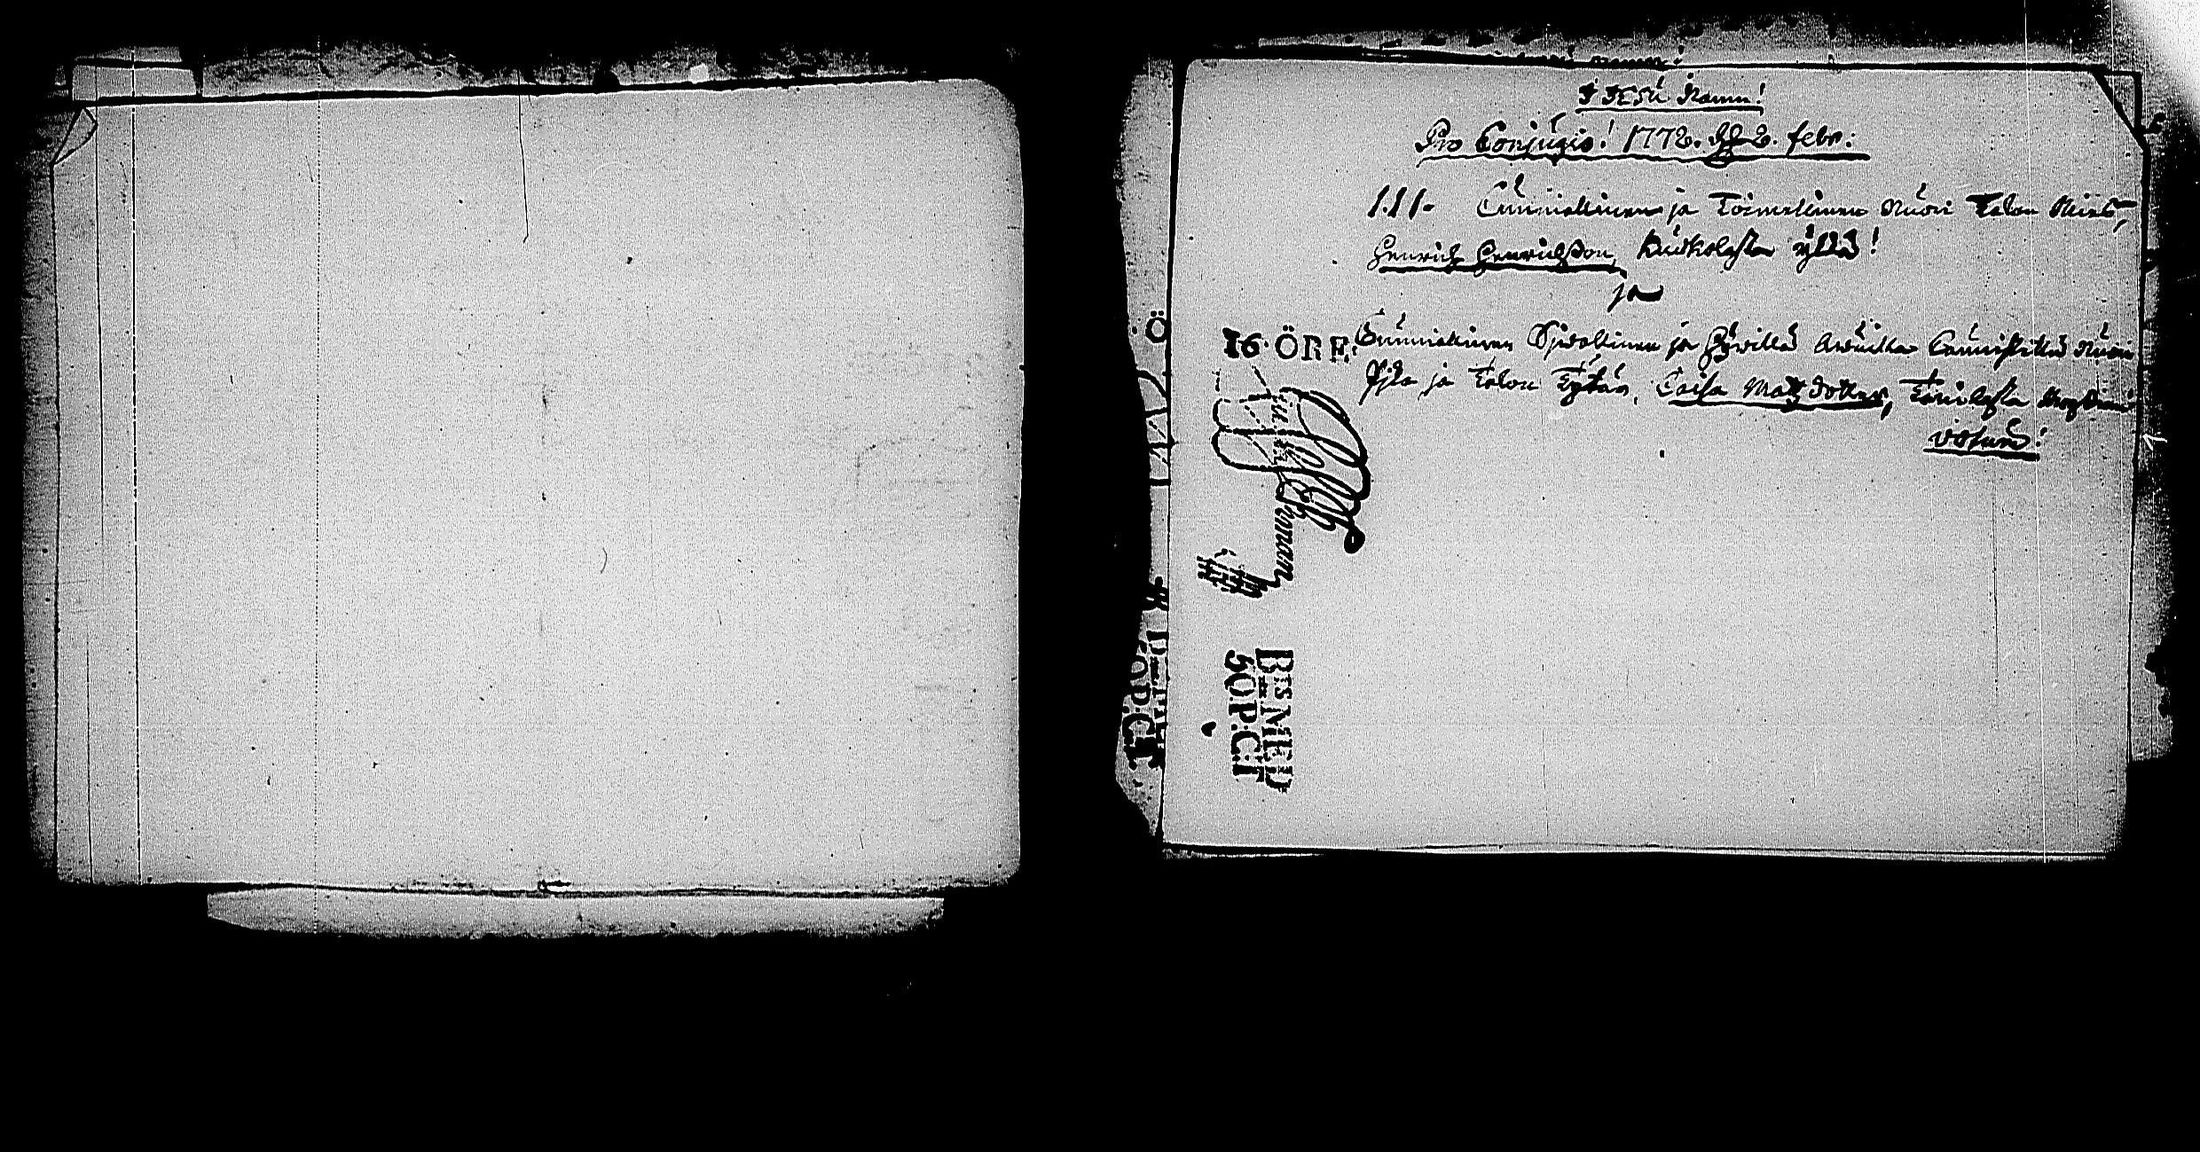 I JESU Namn!
Pro Conjugio! 1772. d. 2. febr:
1.11. Cunniallinen ja Toimelinen Nuori Talon Mies,
Henrich Henrichsson, Kuskolasta ÿllä!
ja
16 ÖRE. Cunniallinen Sjwollinen ja Hywillä Awuilla Caunistettu Nuori
Pjka ja Talon Tytär, Caisa Matzdotter,
votum!
BEs MED
50 P:CT